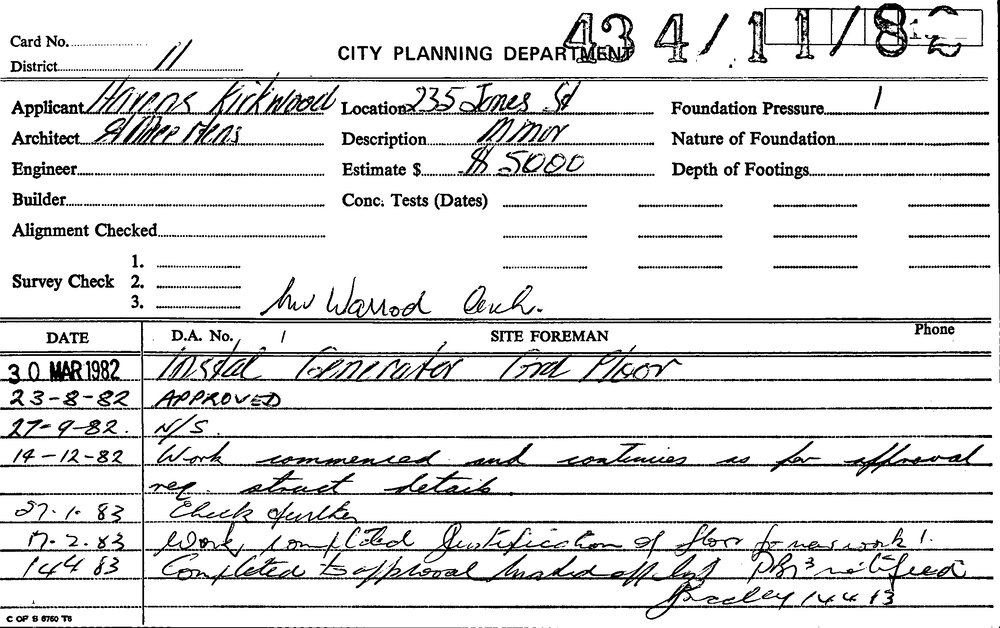 Card No.
434/11/82
District 11
CITY PLANNING DEPARTMENT
Applicant Havens Kirkwood Location 235 Jones St Foundation Pressure
Architect Description Minor Nature of Foundation
Engineer Estimate $ $ 5000 Depth of Footings
Builder Conc. Tests (Dates)
Alignment Checked
1.
Survey Check 2.
3.
Warrod Arch.
DATE D.A. No. / SITE FOREMAN Phone
30 MAR 1982 Instal Generator Grd Floor
23-8-82 APPROVED
27-9-82. N/S.
14-12-82 Work commenced and continues as per approval
req. struct details.
27.1.83 Check further
17.2.83 Work completed Justification of floor for new work
14 4 83 Completed to approval notified
14 4 83
C OF S 6760 T6